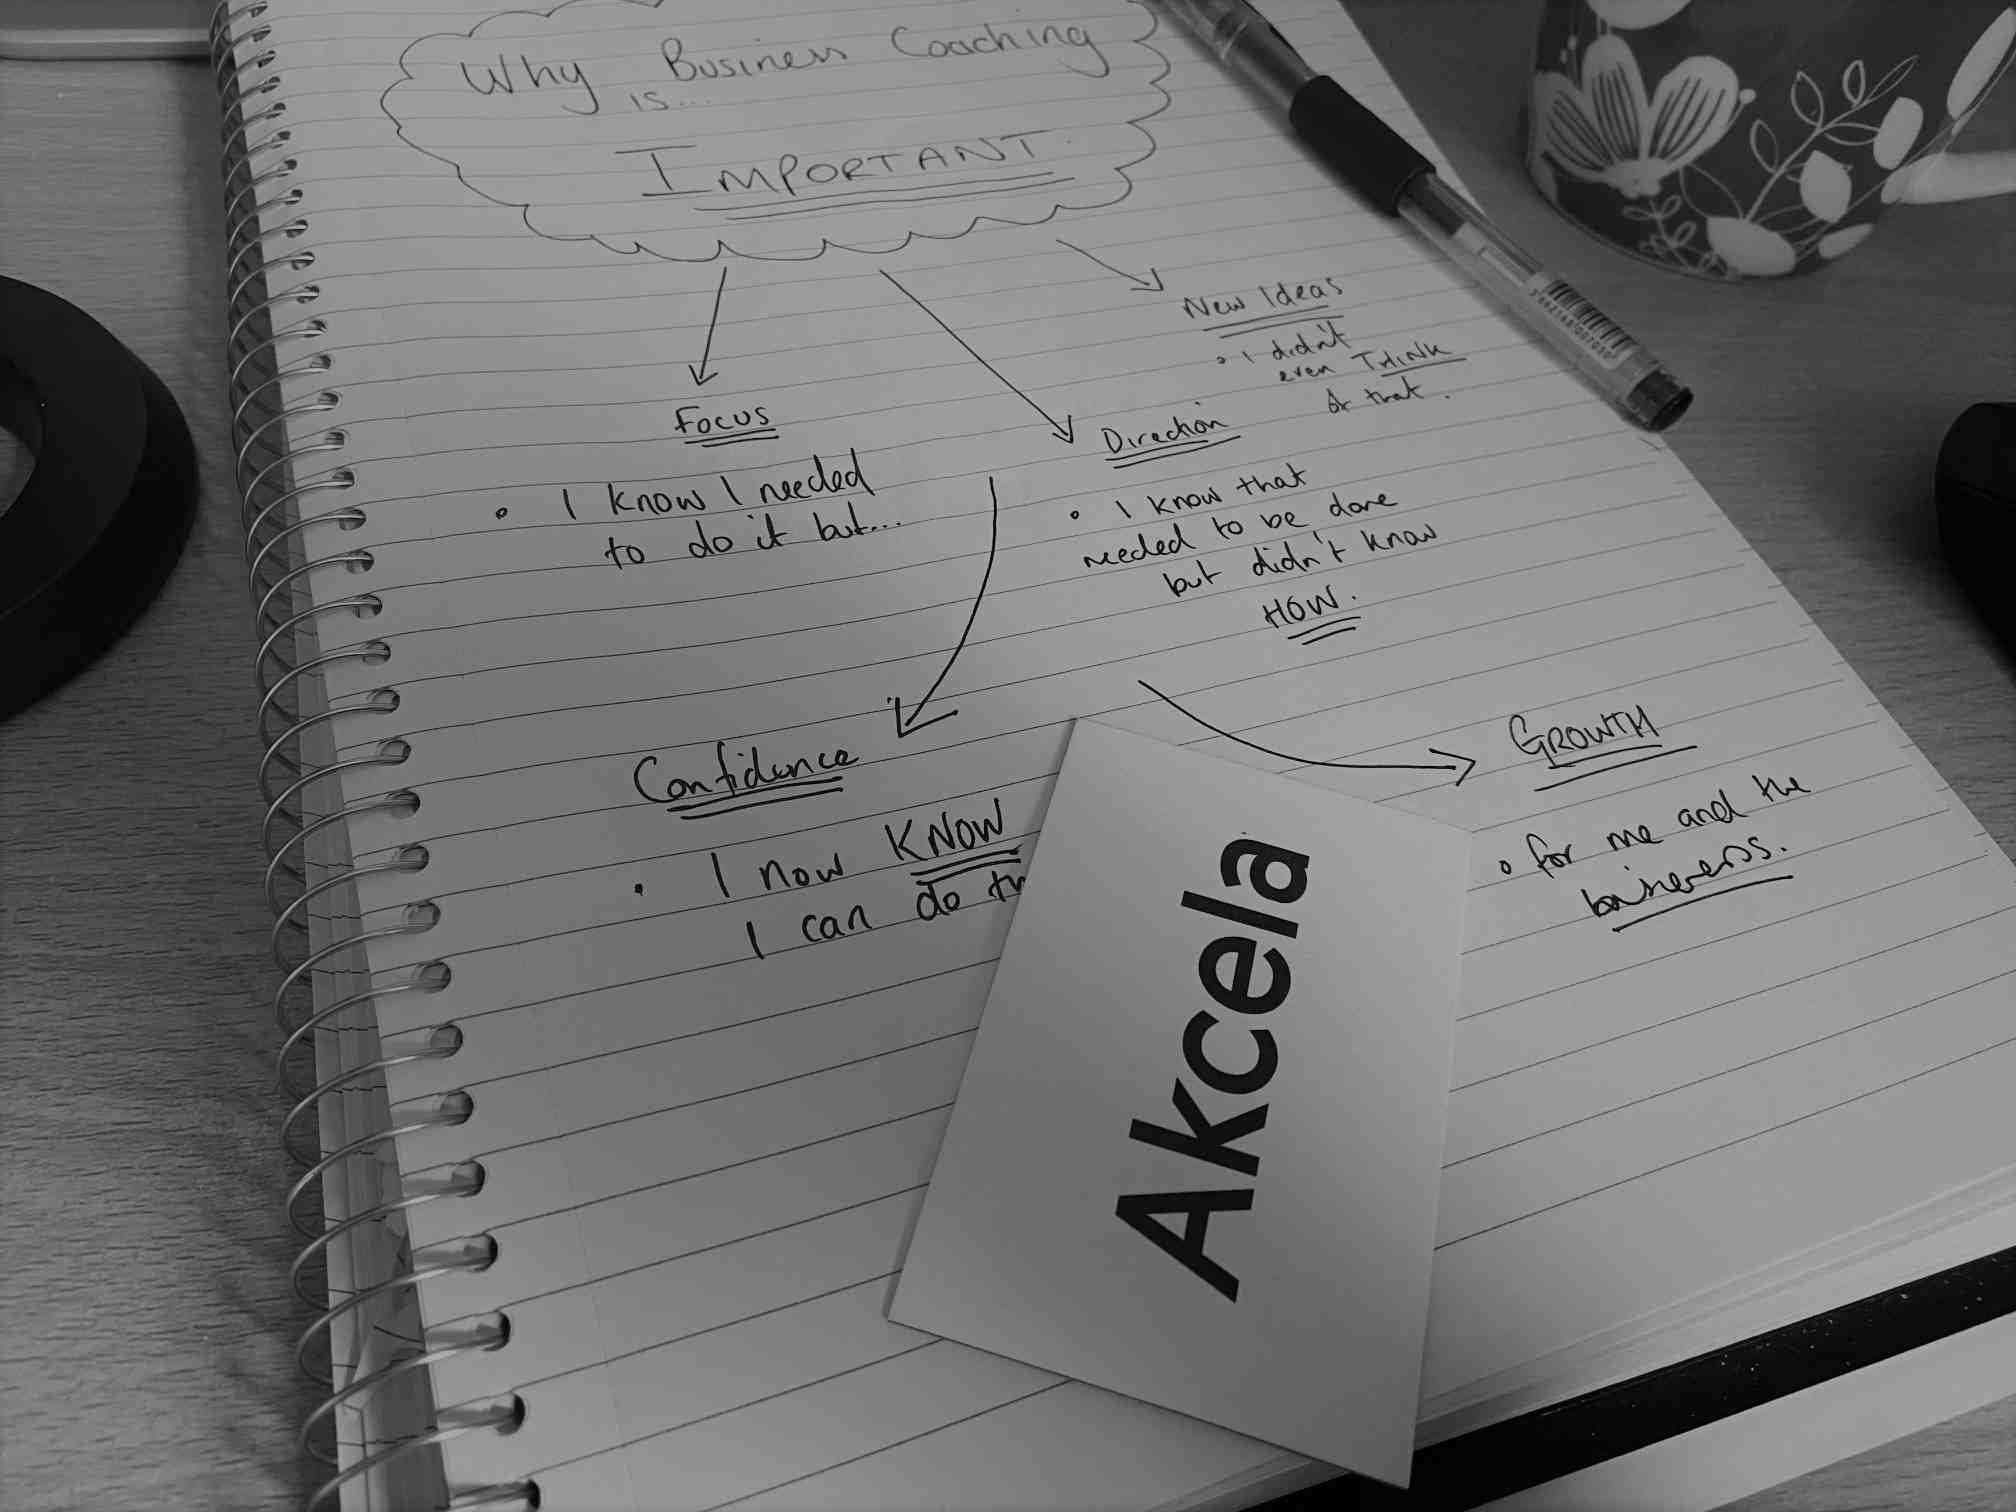 Why Business Coaching
is...
IMPORTANT.
New Ideas
• I didn't
even THINK
of that.
Focus
• I know I needed
to do it but...
Direction
• I know that
needed to be done
but didn't know
HOW.
Confidence
• I now KNOW
I can do
GROWTH
• for me and the
business.
Akcela